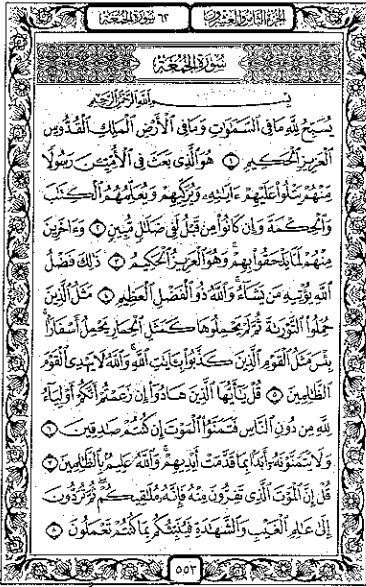 الجزء الثامن والعشرون ٦٢ سورة الجمعة
سورة الجمعة
بسم الله الرحمن الرحيم
يُسَبِّحُ لِلَّهِ مَا فِي ٱلسَّمَٰوَٰتِ وَمَا فِي ٱلْأَرْضِ ٱلْمَلِكِ ٱلْقُدُّوسِ
ٱلْعَزِيزِ ٱلْحَكِيمِ ١ هُوَ ٱلَّذِي بَعَثَ فِي ٱلْأُمِّيِّـۧنَ رَسُولًا
مِّنْهُمْ يَتْلُوا۟ عَلَيْهِمْ ءَايَٰتِهِۦ وَيُزَكِّيهِمْ وَيُعَلِّمُهُمُ ٱلْكِتَٰبَ
وَٱلْحِكْمَةَ وَإِن كَانُوا۟ مِن قَبْلُ لَفِي ضَلَٰلٍ مُّبِينٍ ٢ وَءَاخَرِينَ
مِنْهُمْ لَمَّا يَلْحَقُوا۟ بِهِمْ وَهُوَ ٱلْعَزِيزُ ٱلْحَكِيمُ ٣ ذَٰلِكَ فَضْلُ
ٱللَّهِ يُؤْتِيهِ مَن يَشَآءُ وَٱللَّهُ ذُو ٱلْفَضْلِ ٱلْعَظِيمِ ٤ مَثَلُ ٱلَّذِينَ
حُمِّلُوا۟ ٱلتَّوْرَىٰةَ ثُمَّ لَمْ يَحْمِلُوهَا كَمَثَلِ ٱلْحِمَارِ يَحْمِلُ أَسْفَارًۢا
بِئْسَ مَثَلُ ٱلْقَوْمِ ٱلَّذِينَ كَذَّبُوا۟ بِـَٔايَٰتِ ٱللَّهِ وَٱللَّهُ لَا يَهْدِي ٱلْقَوْمَ
ٱلظَّٰلِمِينَ ٥ قُلْ يَٰٓأَيُّهَا ٱلَّذِينَ هَادُوٓا۟ إِن زَعَمْتُمْ أَنَّكُمْ أَوْلِيَآءُ
لِلَّهِ مِن دُونِ ٱلنَّاسِ فَتَمَنَّوُا۟ ٱلْمَوْتَ إِن كُنتُمْ صَٰدِقِينَ ٦
وَلَا يَتَمَنَّوْنَهُۥٓ أَبَدًۢا بِمَا قَدَّمَتْ أَيْدِيهِمْ وَٱللَّهُ عَلِيمٌۢ بِٱلظَّٰلِمِينَ ٧
قُلْ إِنَّ ٱلْمَوْتَ ٱلَّذِي تَفِرُّونَ مِنْهُ فَإِنَّهُۥ مُلَٰقِيكُمْ ثُمَّ تُرَدُّونَ
إِلَىٰ عَٰلِمِ ٱلْغَيْبِ وَٱلشَّهَٰدَةِ فَيُنَبِّئُكُم بِمَا كُنتُمْ تَعْمَلُونَ ٨
٥٥٣